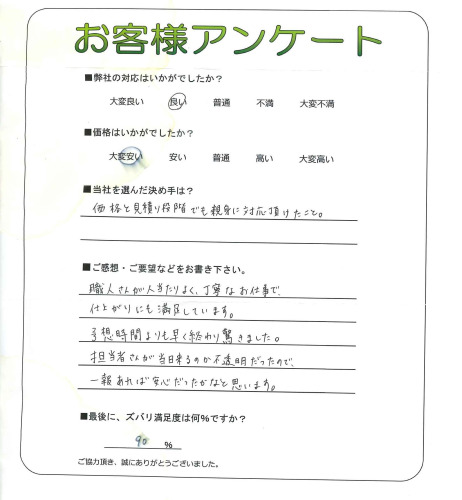 お客様アンケート
■弊社の対応はいかがでしたか？
大変良い 良い 普通 不満 大変不満
■価格はいかがでしたか？
大変安い 安い 普通 高い 大変高い
■当社を選んだ決め手は？
価格と見積り段階でも親身に対応頂けたこと。
■ご感想・ご要望などをお書き下さい。
職人さんが人当たりよく、丁寧なお仕事で、
仕上がりにも満足しています。
予想時間よりも早く終わり驚きました。
担当者さんが当日来るのか不透明だったので、
一報あれば安心だったかなと思います。
■最後に、ズバリ満足度は何%ですか？
90 %
ご協力頂き、誠にありがとうございました。